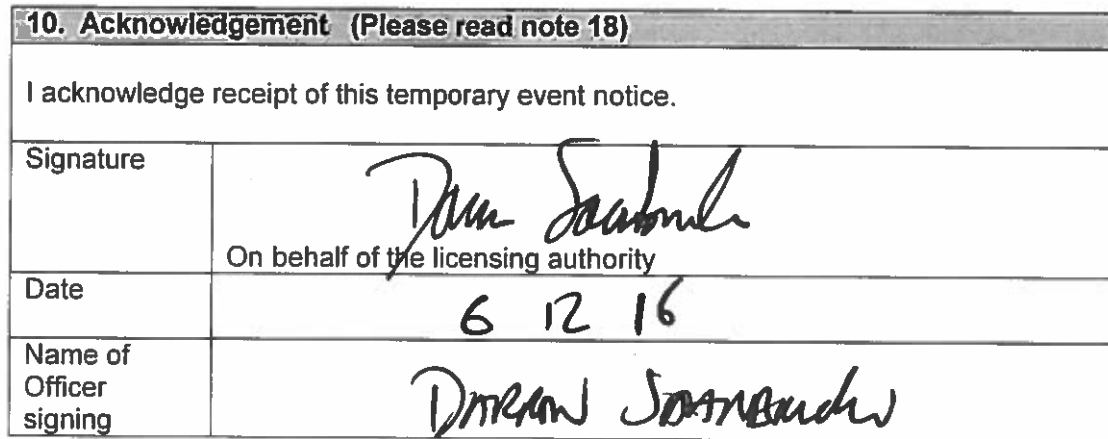 10. Acknowledgement (Please read note 18)
I acknowledge receipt of this temporary event notice.
Signature
On behalf of the licensing authority
Date
6 12 16
Name of
Officer
signing